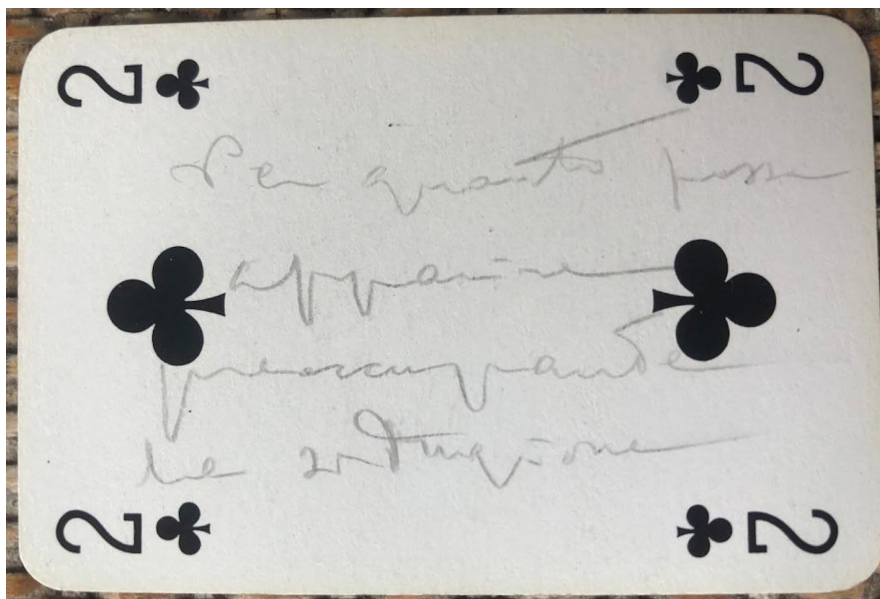 2 2
Per quanto possa
apparire
preoccupante
la situazione
2 2